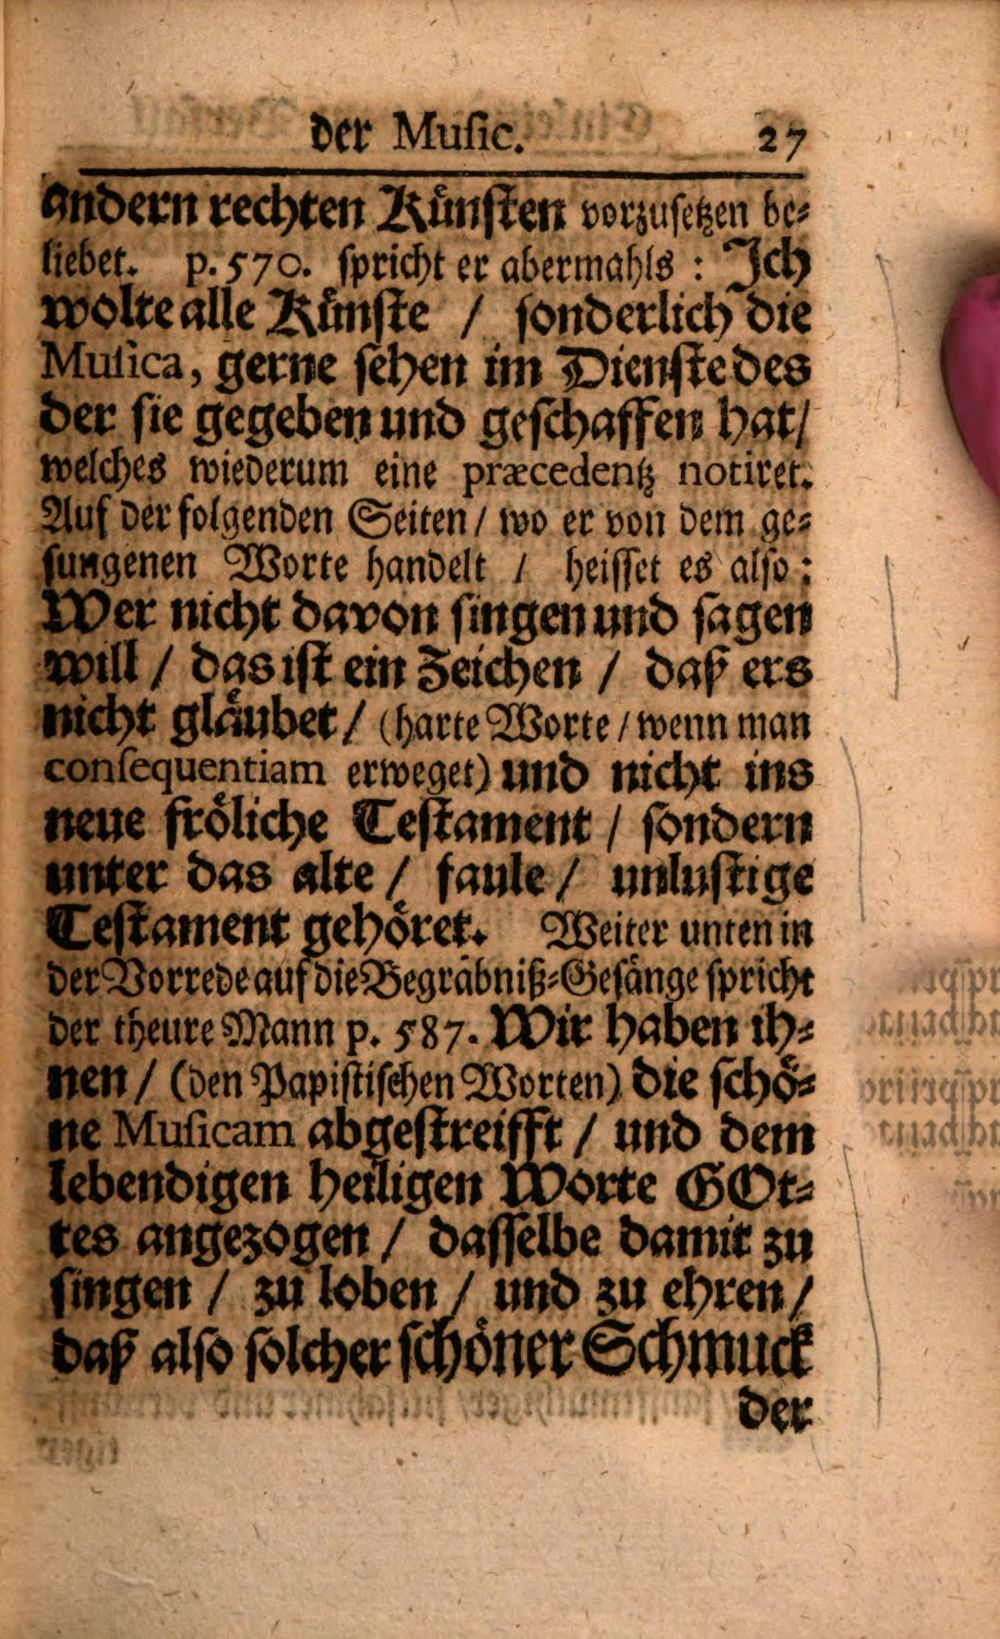 der Muſic. 27
andern rechten Künſten vorzuſetzen be⸗
liebet. p. 570. ſpricht er abermahls : Ich
wolte alle Künſte / ſonderlich die
Muſica, gerne ſehen im Dienſte des
der ſie gegeben und geſchaffen hat/
welches wiederum eine præcedentz notiret.
Auf der folgenden Seiten / wo er von dem ge⸗
ſungenen Worte handelt / heiſſet es alſo :
Wer nicht davon ſingen und ſagen
will / das iſt ein Zeichen / daß ers
nicht gläubet / (harte Worte / wenn man
conſequentiam erweget) und nicht ins
neue fröliche Teſtament / ſondern
unter das alte / faule / unluſtige
Teſtament gehöret. Weiter unten in
der Vorrede auf die Begräbniß⸗Geſänge ſpricht
der theure Mann p. 587. Wir haben ih⸗
nen / (den Papiſtiſchen Worten) die ſchö⸗
ne Muſicam abgeſtreifft / und dem
lebendigen heiligen Worte GOt⸗
tes angezogen / daſſelbe damit zu
ſingen / zu loben / und zu ehren /
daß alſo ſolcher ſchöner Schmuck
der